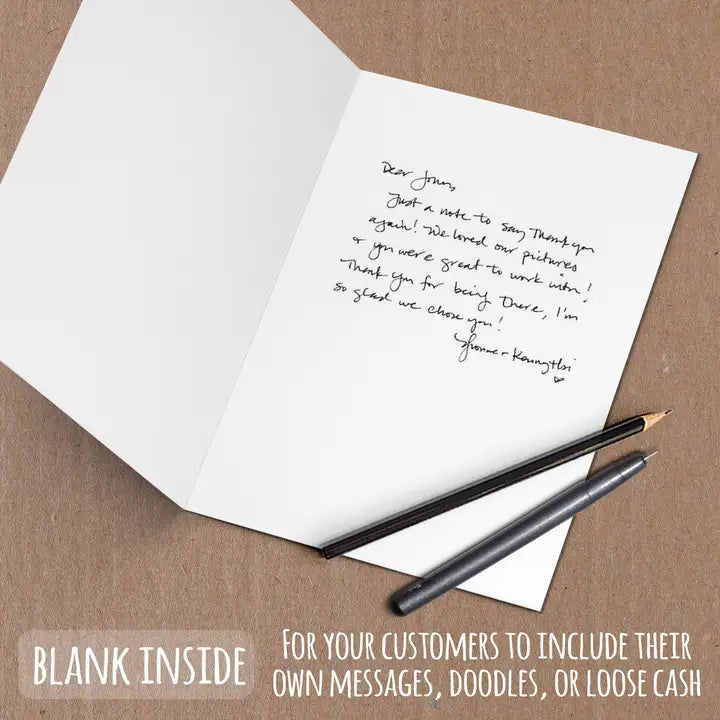 Dear Jonas,
Just a note to say Thank you
again! We loved our pictures
& you were great to work with!
Thank you for being there, I'm
so glad we chose you!
Yvonne + 
BLANK INSIDE
FOR YOUR CUSTOMERS TO INCLUDE THEIR
OWN MESSAGES, DOODLES, OR LOOSE CASH